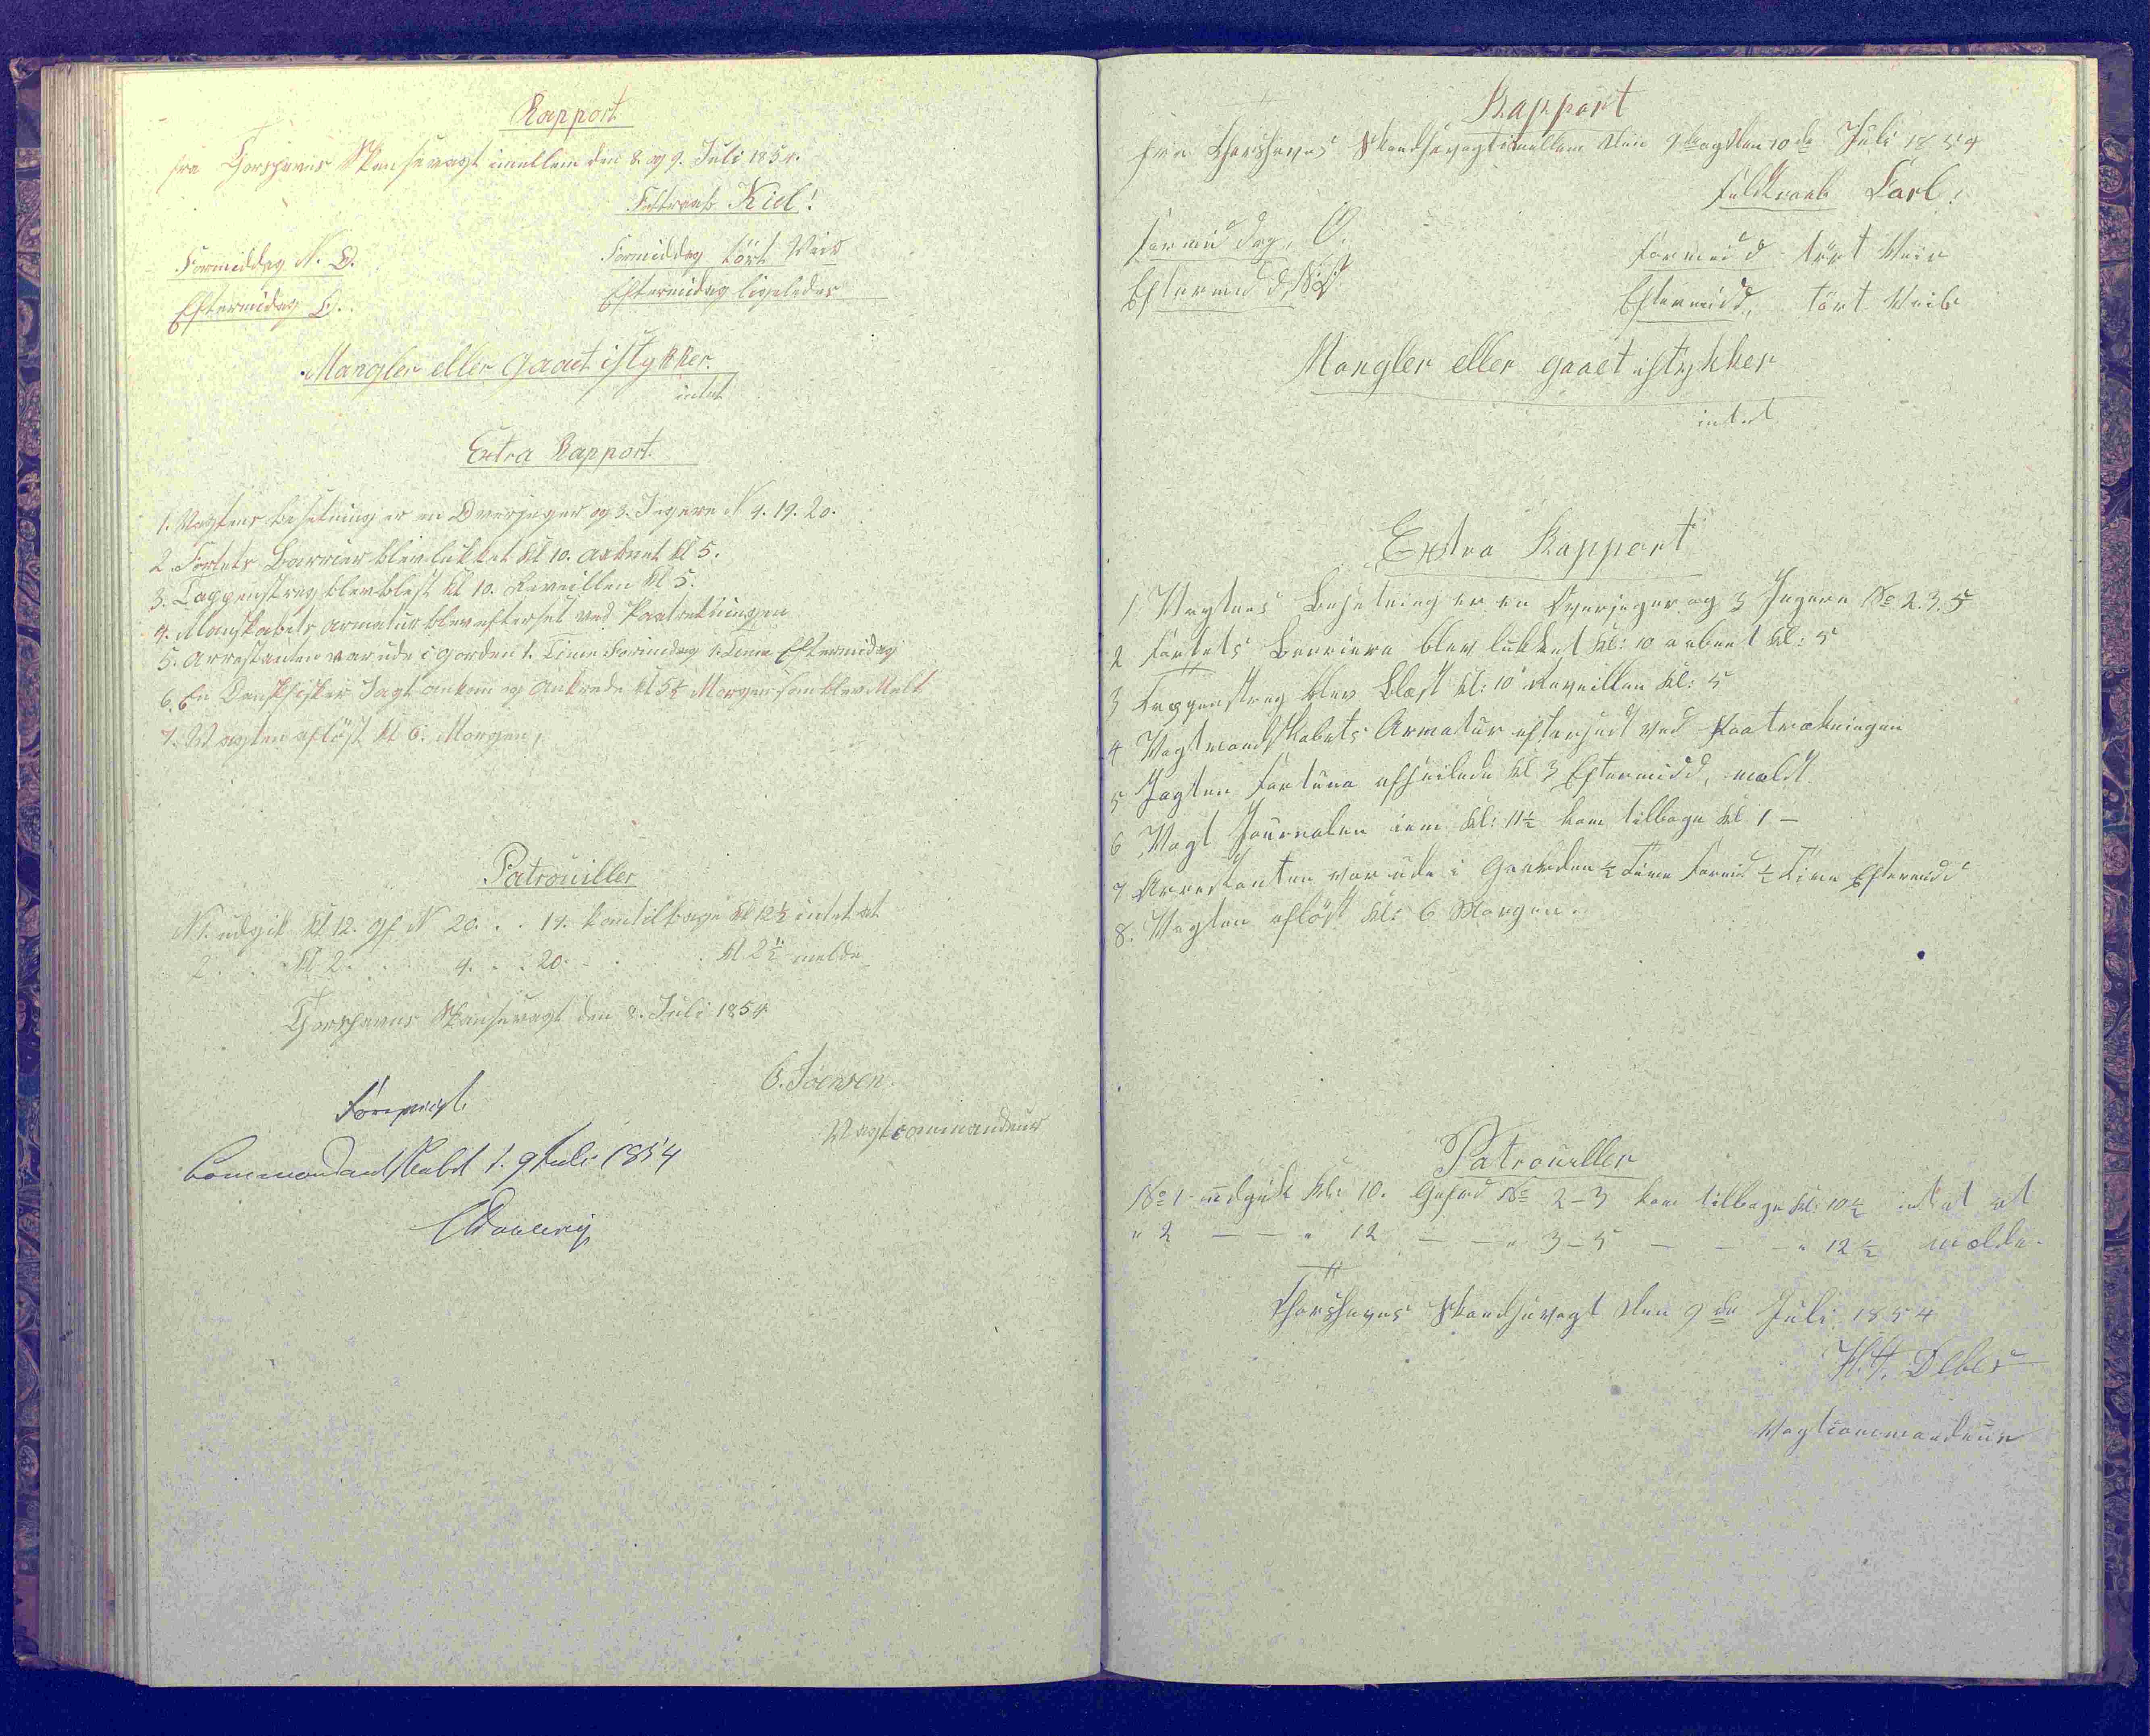 Rapport
fra Thorshavns Skansevagt imellem den 8. og 9. Juli 1854.
Feltraab Kiel!
Formiddag N. O.
Formiddag tört Veir
Eftermidag O.
Eftermidag ligeledes
Mangler eller gaaet istykker.
intet
Extra Rapport.
1. Vagtens besetning er en Overjeger og 3. Jegere N 4. 19. 20.
2. Fortets Barrier blev lukket kl 10. aabnet kl 5.
3. Tappenstreg blev blest kl 10. Reveillen kl 5.
4. Manskabets armatur blev efterset ved Paatrekningen
5. Arrestanten var ude i gorden 1. Time Formidag 1. Time Eftermidag
6. En Dansk fisker Jagt ankom og Ankrede kl 5½ Morgen som blev Melt
7. Vagten aflöst kl 6. Morgen,
Patrouiller
N 1. udgik kl 12. gf N 20. . . 19. kom tilbage kl 12½ intet at
2 . . kl 2. . . 4. . . 20. . . . kl 2½ melde
Thorshavns Skansevagt den 8. Juli 1854
C. Joensen.
Vagtcommandeur
Forevist.
Commandantskabet d. 9 Juli 1854
CDahlerup
Rapport
fra Thorshavns Skandsevagt imellem den 9de og den 10de Juli 1854
Feldtraab Carl!
Formiddag, O.
Formidd tört Veir
Eftermidd, N:O
Eftermidd, tört Veir
Mangler eller gaaet istykker
intet
Extra Rapport
1 Vagtens Besetning er en Overjeger og 3 Jegere No 2. 3. 5
2 Fortets Barriere blev lukket kl: 10 aabent kl: 5
3 Tappenstreg blev blæst kl: 10 Reveillen kl: 5
4 Vagtmandskabets Armatur efterseet ved Paatrækningen
5 Jagten Fortuna afseilede kl 3 Eftermidd, meldt
6 Vagt Journalen kl: 11½ kom tilbage kl 1 —
7 Arrestanten var ude i Gaarden ½ Time Formid ½ Time Eftermidd
8. Vagten aflöst kl: 6 Morgen.
Patrouiller
No 1 udgik kl: 10. Gefred No 2 – 3 kom tilbage kl: 10½ intet at
" 2 — — " 12 — — " 3 – 5 — — — " 12½ melde.
Thorshavns Skandsevagt den 9de Juli 1854
H. H. Debes
Vagtcommandeur